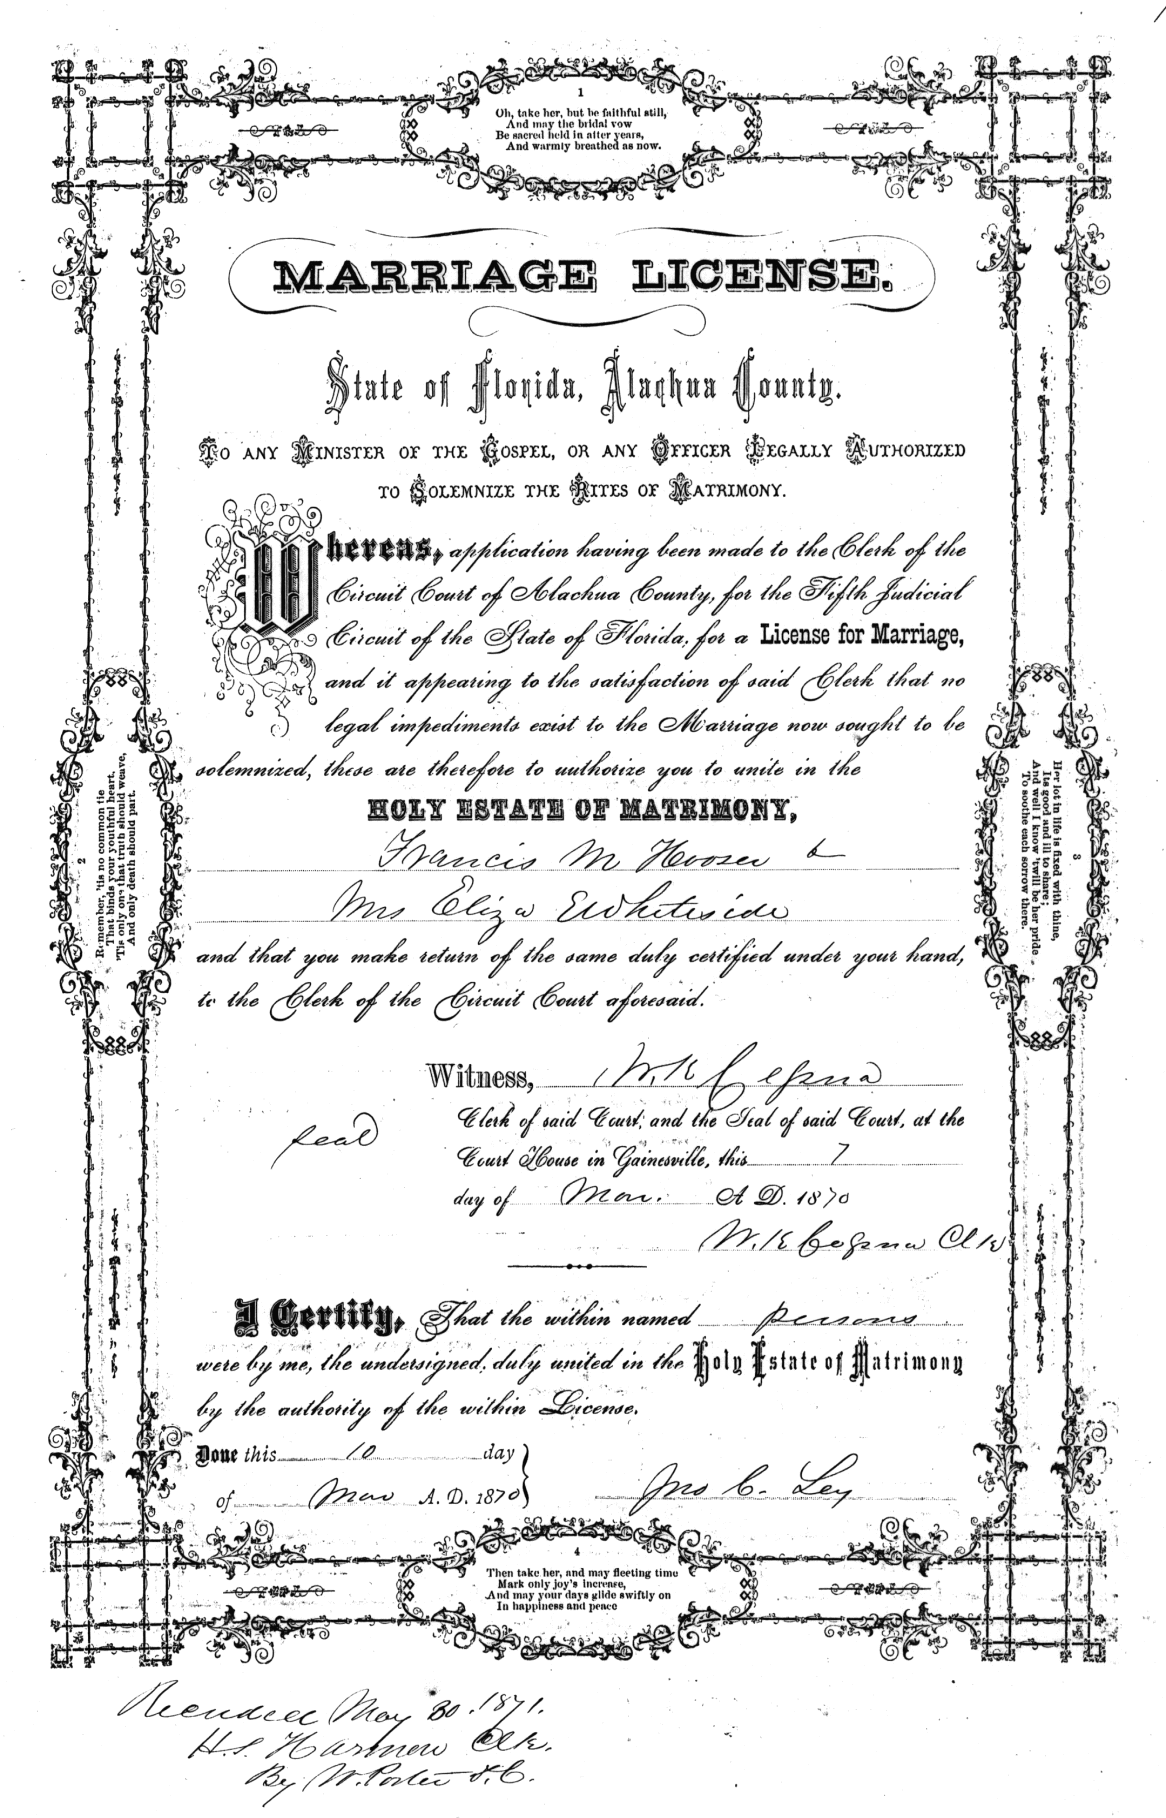 1
Oh, take her, but be faithful still,
And may the bridal vow
Be sacred held in after years,
And warmly breathed as now.
MARRIAGE LICENSE.
State of Florida, Alachua County.
TO ANY MINISTER OF THE GOSPEL, OR ANY OFFICER LEGALLY AUTHORIZED
TO SOLEMNIZE THE RITES OF MATRIMONY.
Whereas, application having been made to the Clerk of the
Circuit Court of Alachua County, for the Fifth Judicial
Circuit of the State of Florida, for a License for Marriage,
and it appearing to the satisfaction of said Clerk that no
legal impediments exist to the Marriage now sought to be
solemnized, these are therefore to authorize you to unite in the
HOLY ESTATE OF MATRIMONY,
Francis M Hooser &
Mrs Eliza E Whiteside
and that you make return of the same duly certified under your hand,
to the Clerk of the Circuit Court aforesaid.
2
Remember, 'tis no common tie
That binds your youthful heart,
'Tis only one that truth should weave,
And only death should part.
3
Her lot in life is fixed with thine,
Its good and ill to share;
And well I know 'twill be her pride
To soothe each sorrow there.
Witness, W. K Cessna
Clerk of said Court, and the Seal of said Court, at the
seal
Court House in Gainesville, this 7
day of Mar. A D. 1870
W. K Cessna Clk
I Certify, That the within named persons
were by me, the undersigned, duly united in the Holy Estate of Matrimony
by the authority of the within License.
Done this 10 day
of Mar A. D. 1870 Jno C. Ley
4
Then take her, and may fleeting time
Mark only joy's increase,
And may your days glide swiftly on
In happiness and peace
Recorded May 30. 1871.
H. S. Harmon Clk.
By W. Porter D. C.